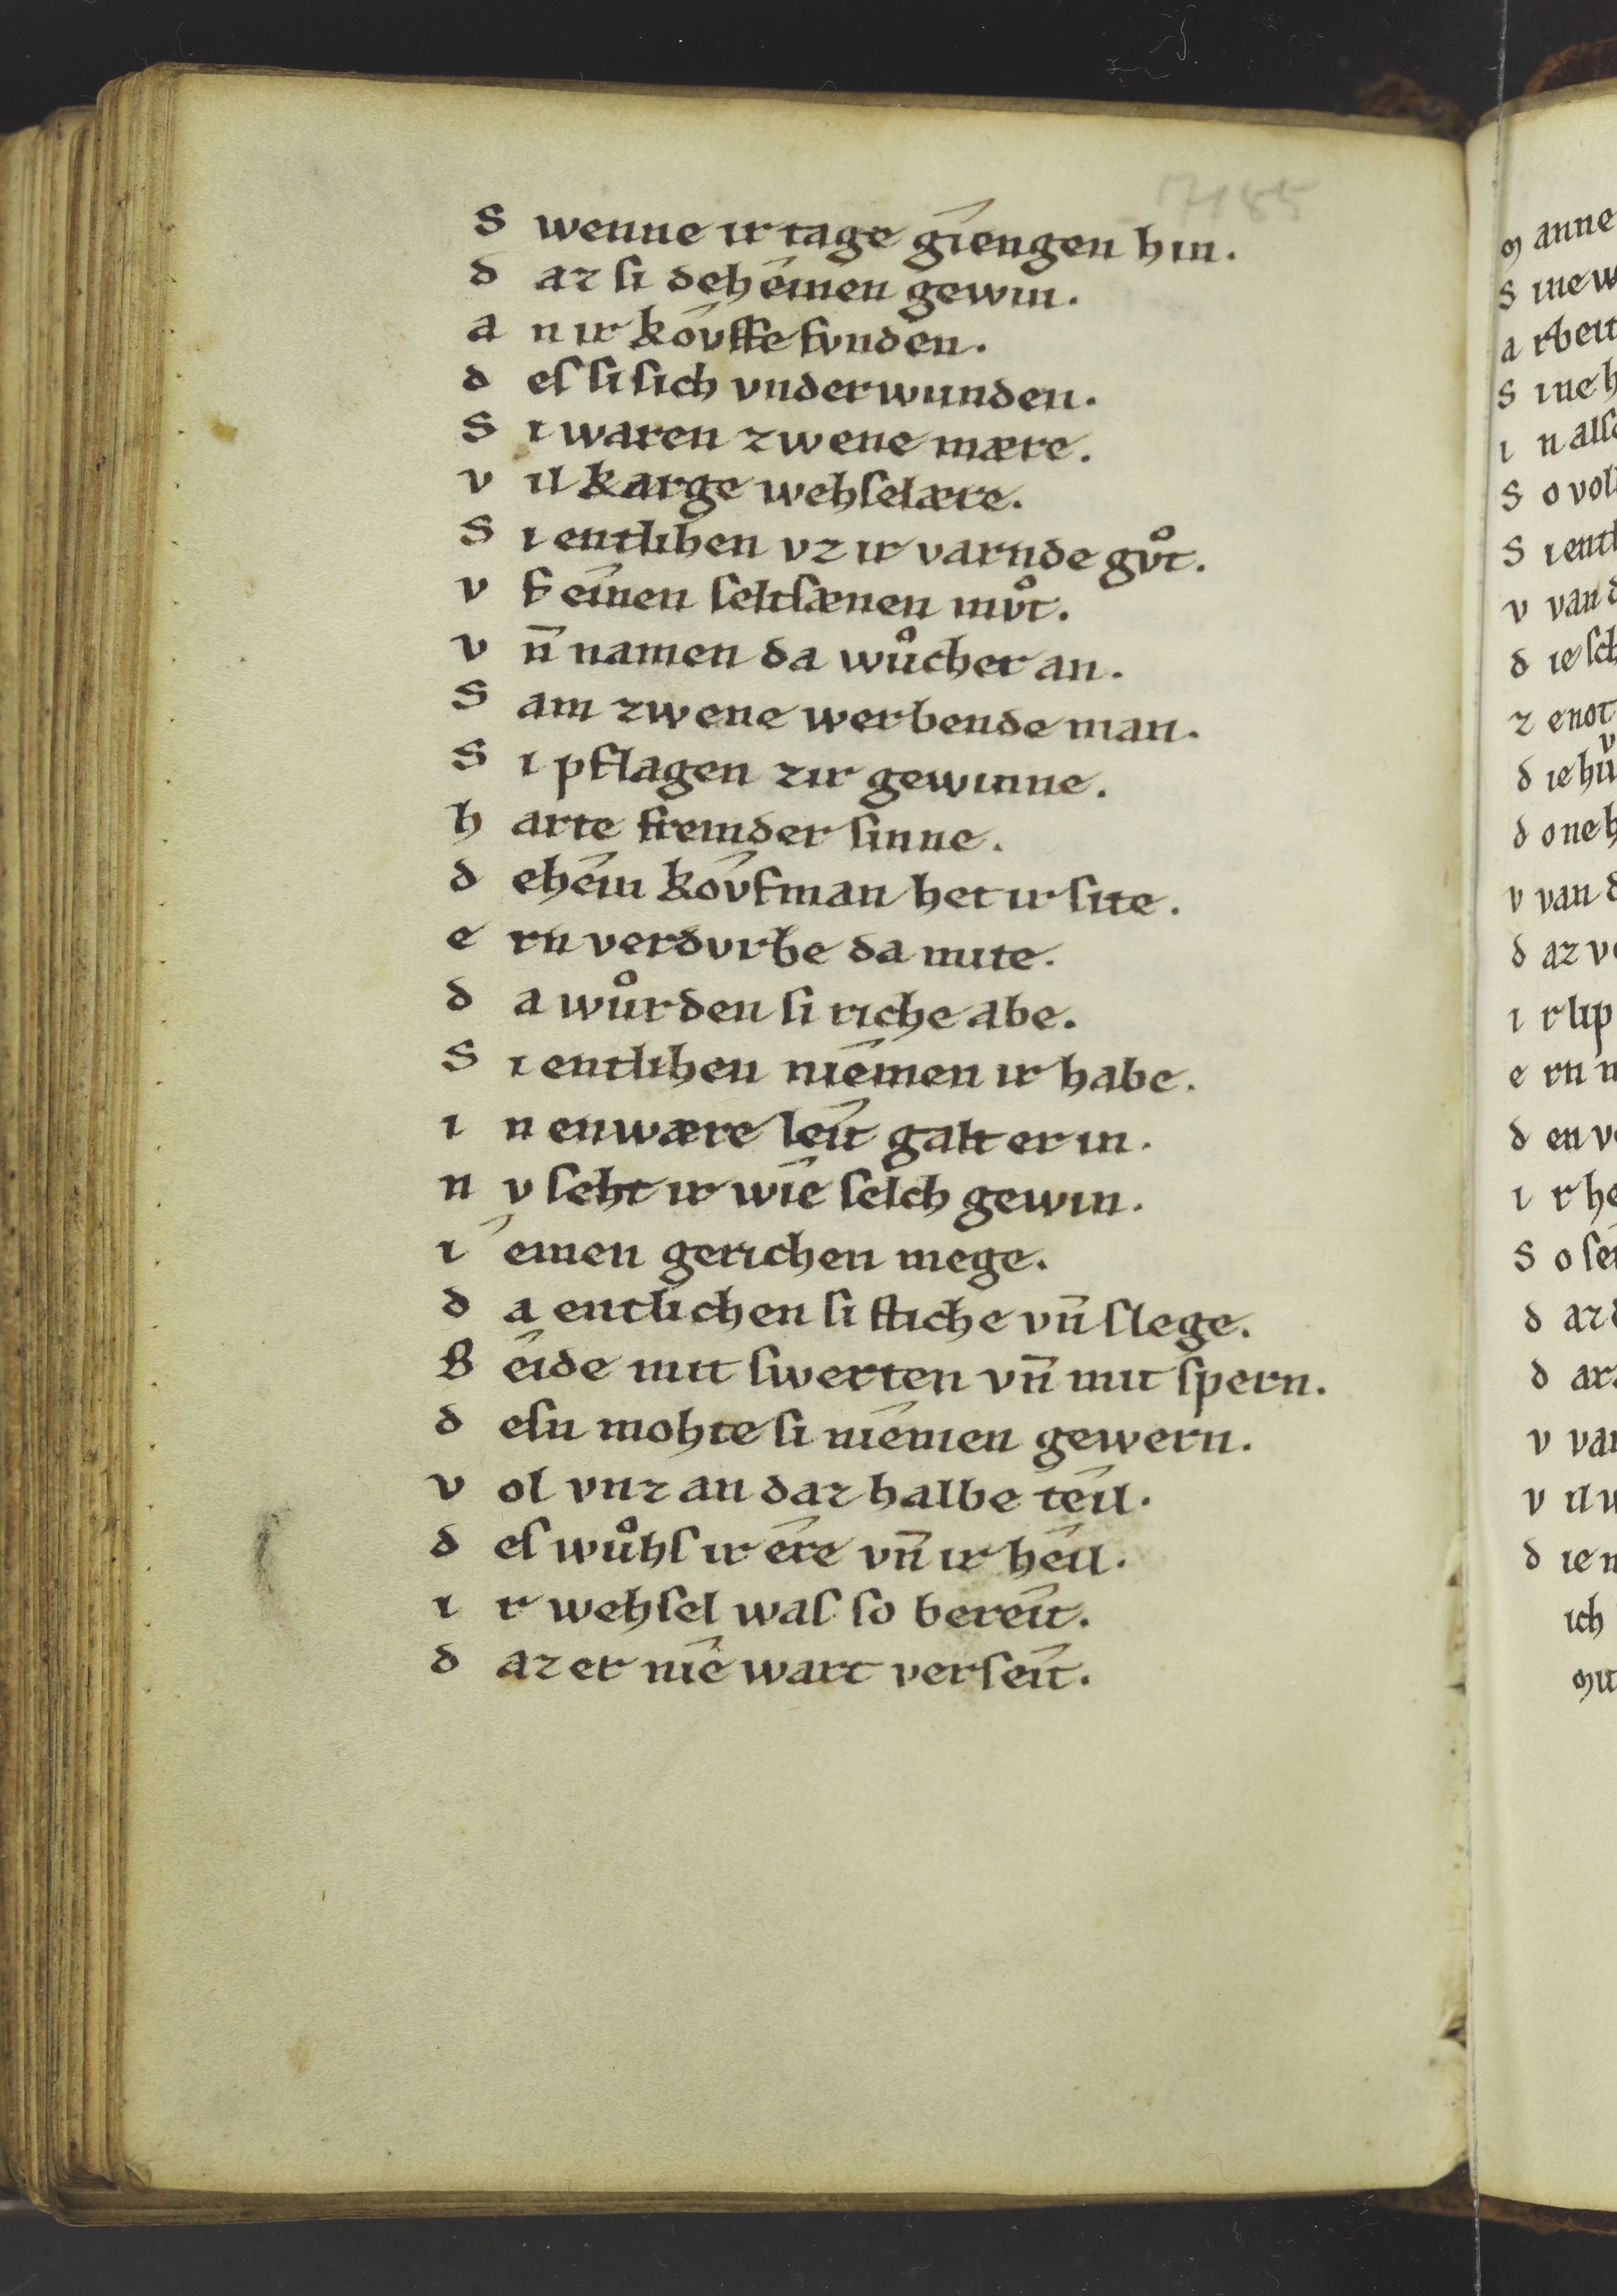 7185
S wenne ir tage gîengen hin.
d az ſi dehêinen gewin.
a n ir kôvffe fvnden.
d eſ ſi ſich vnderwunden.
S i waren zwene mære.
v il karge wehſelære.
S i entlihen vz ir varnde gvͦt.
v f êinen ſeltſænen mvͦt.
v n̄ namen da wuͦcher an.
S am zwene werbende man.
S i pflagen zir gewinne.
h arte fremder ſinne.
d ehêin kôvfman het ir ſite.
e rn verdvrbe da mite.
d a wuͦrden ſi riche abe.
S i entlihen nîemen ir habe.
i n enwære lêit galt er in.
n v ſeht ir wîe ſelch gewin.
î emen gerichen mege.
d a entlichen ſi ſtiche vn̄ ſlege.
B êide mit ſwerten vn̄ mit ſpern.
d eſn mohte ſi nîemen gewern.
v ol vnz an daz halbe têil.
d eſ wuͦhſ ir êre vn̄ ir hêil.
i r wehſel waſ ſo berêit.
d az er nîe wart verſêit.
m anne
S ine w
a rbeit
S ine h
i n alſ
S o vol
S i entl
v van d
d ie ſch
z e not
d ie hu
d one h
v van d
d az v
i r lip
e rn n
d en v
i r he
S o ſei
d az d
d ar
v van
v il
d ie
ich